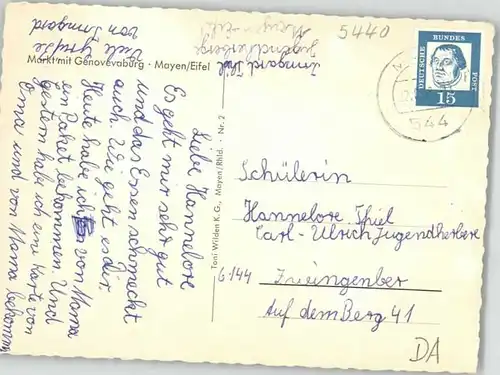 Markt mit Genovevaburg · Mayen/Eifel
Liebe Hannelore
Es geht mir sehr gut
und das Essen schmeckt
auch. Wie geht es Dir.
Heute habe ich von Mama
ein Paket bekommen. Und
gestern habe ich eine Karte von
Oma und von Mama bekomm
Viele Grüße
von Irmgard
Irmgard Thiel
Jugendherberge
Mayen
5440
Toni Wilden K.G., Mayen/Rhld. · Nr. 2
DEUTSCHE BUNDES POST
15
544
Schülerin
Hannelore Thiel
Carl-Ulrich Jugendherbere
6144 Zwingenber
Auf dem Berg 41
DA